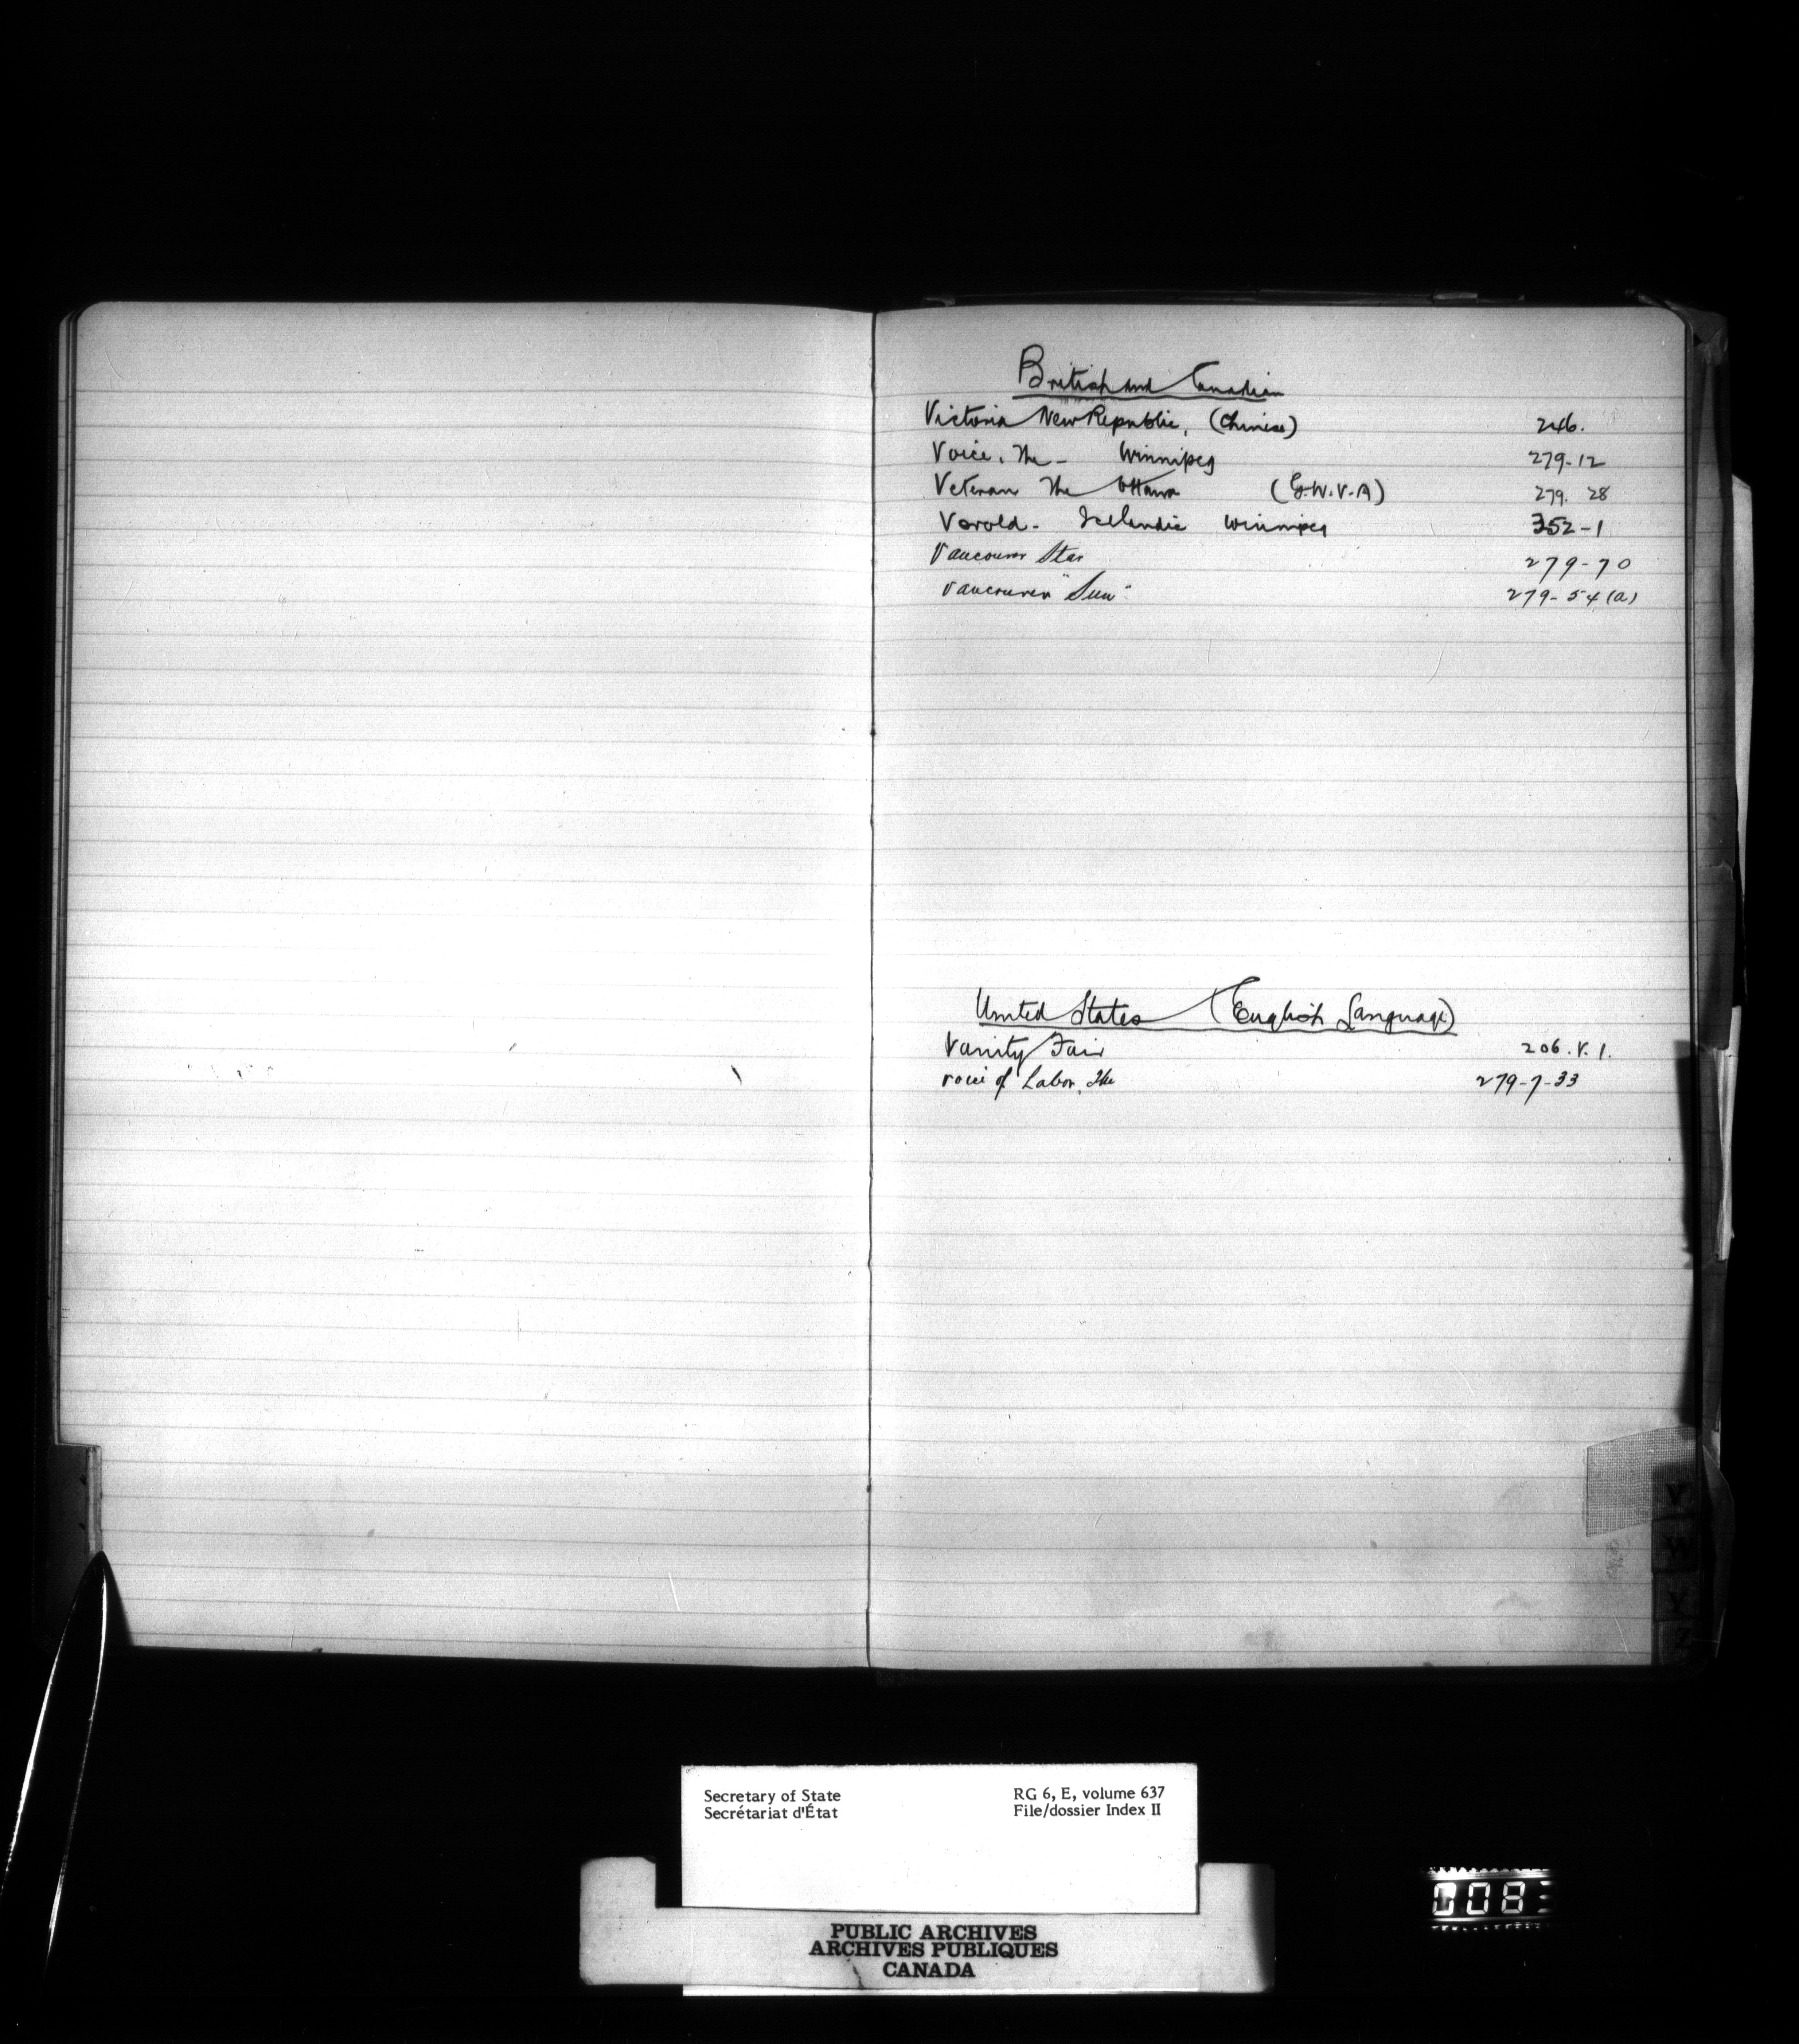 British and Canadian
Victoria New Republic, (Chinese) 246.
Voice, The - Winnipeg 279-12
Veteran The Ottawa (G.W.V.A) 279. 28
Vorold - Icelandic Winnipeg 352-1
Vancouver Star 279-70
Vancouver "Sun" 279-54(a)
United States (English Language)
Vanity Fair 206.V.1.
Voice of Labor, The 279-7-33
V
W
Y
Z
Secretary of State
Secrétariat d'État
RG 6, E, volume 637
File/dossier Index II
PUBLIC ARCHIVES
ARCHIVES PUBLIQUES
CANADA
008